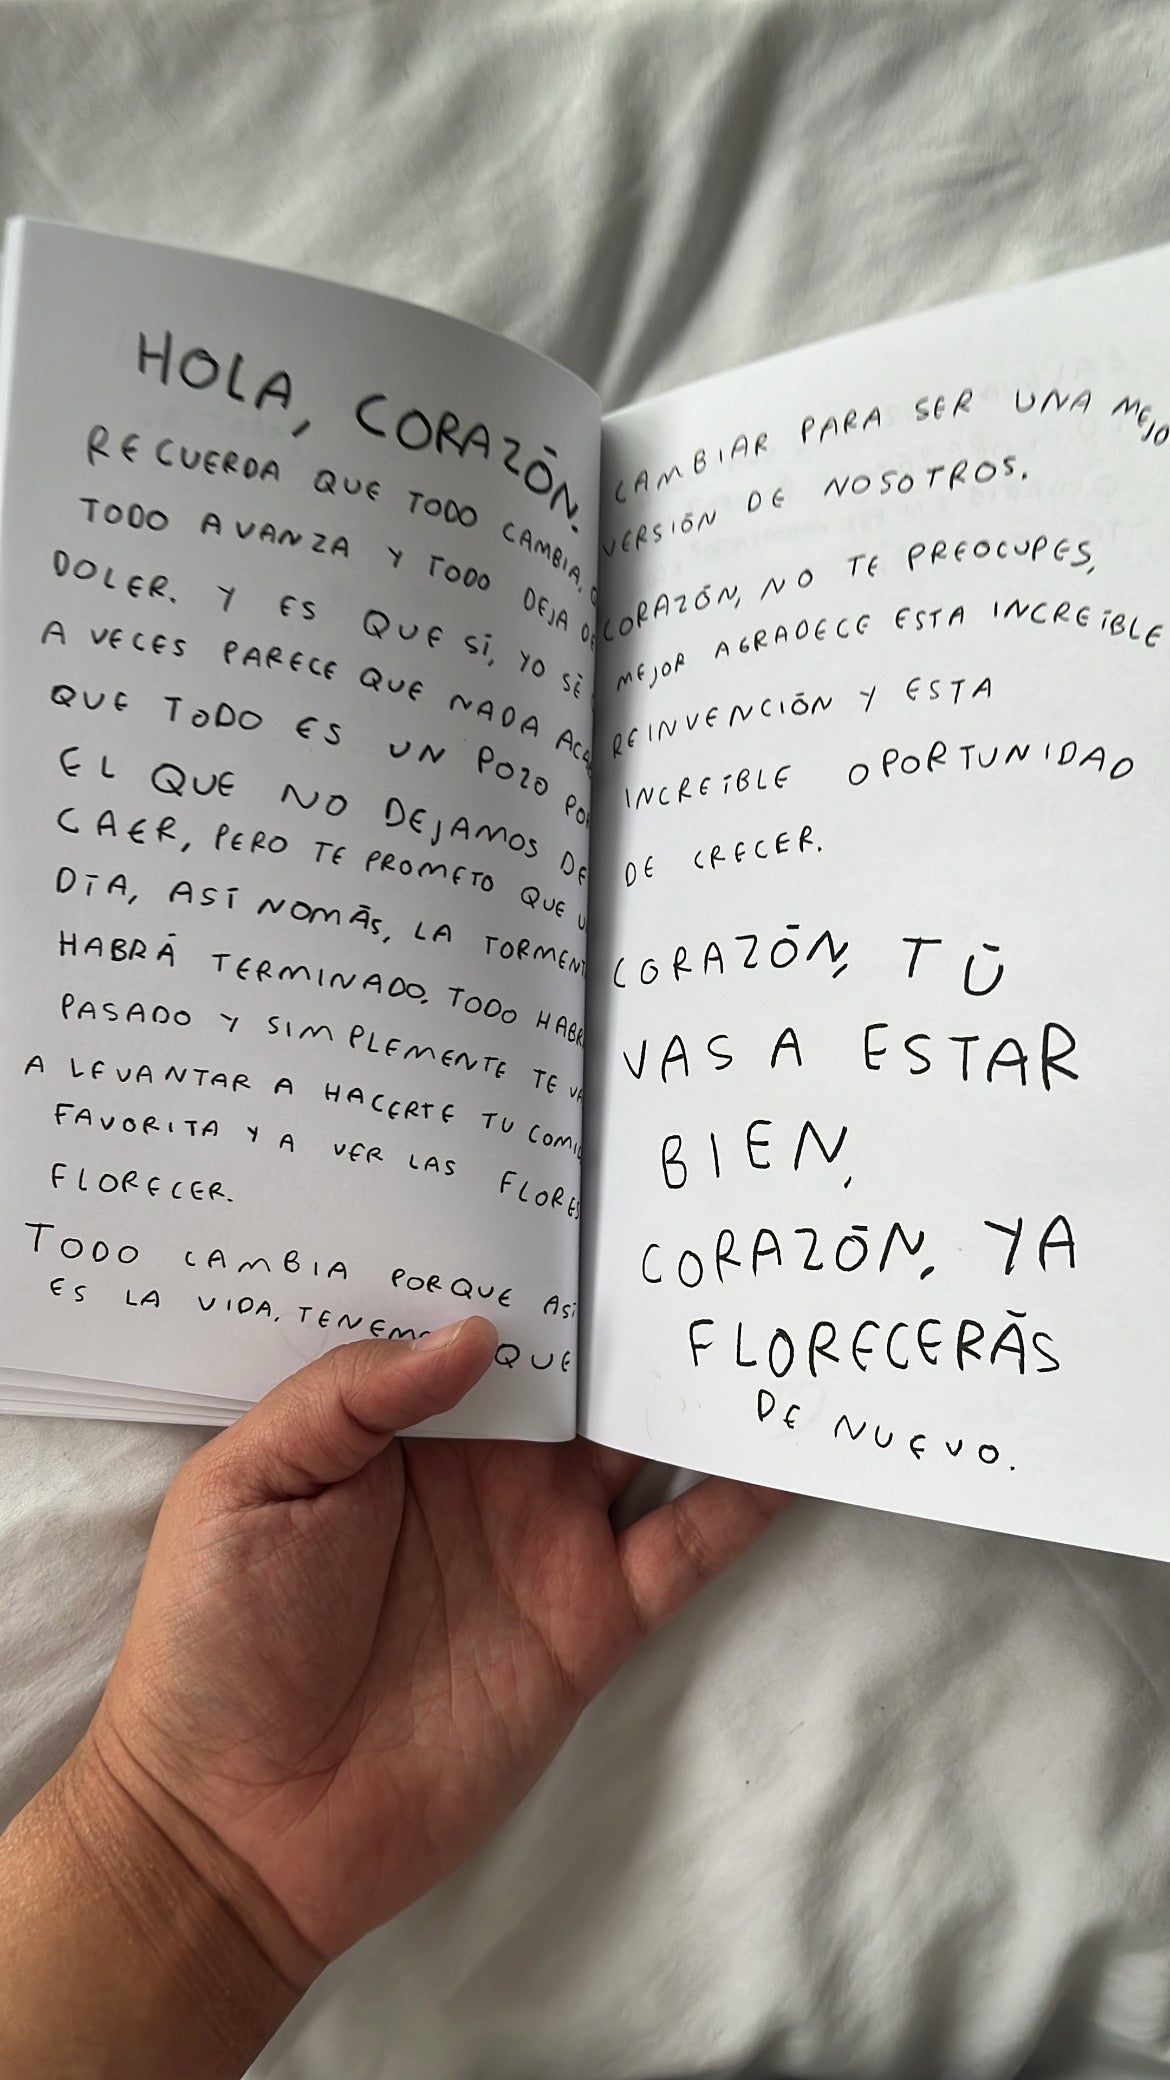 HOLA, CORAZÓN.
RECUERDA QUE TODO CAMBIA,
TODO AVANZA Y TODO DEJA DE
DOLER. Y ES QUE SÍ, YO SÉ
A VECES PARECE QUE NADA
QUE TODO ES UN POZO POR
EL QUE NO DEJAMOS DE
CAER, PERO TE PROMETO QUE
DÍA, ASÍ NOMÁS, LA
HABRÁ TERMINADO, TODO
PASADO Y SIMPLEMENTE TE
A LEVANTAR A HACERTE TU
FAVORITA Y A VER LAS FLORES
FLORECER.
TODO CAMBIA PORQUE ASÍ
ES LA VIDA. QUE
CAMBIAR PARA SER UNA
VERSIÓN DE NOSOTROS.
CORAZÓN, NO TE PREOCUPES,
MEJOR AGRADECE ESTA INCREÍBLE
REINVENCIÓN Y ESTA
INCREÍBLE OPORTUNIDAD
DE CRECER.
CORAZÓN, TÚ
VAS A ESTAR
BIEN,
CORAZÓN, YA
FLORECERÁS
DE NUEVO.